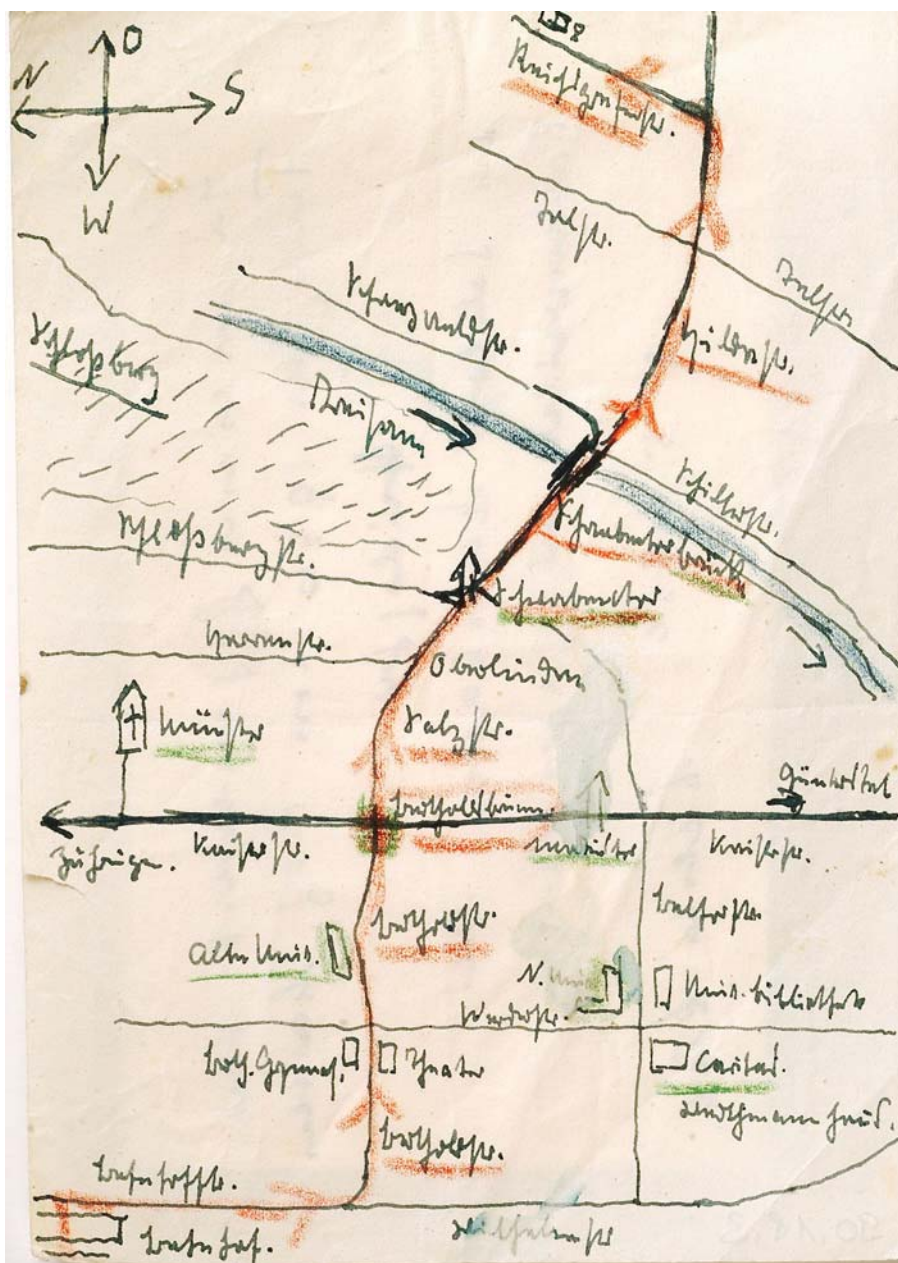 O
N
S
W
8
Reichsgrafenstr.
Talstr.
Talstr.
Schwarzwaldstr.
Schloßberg
Hildastr.
Dreisam
Schillerstr.
Schwabentorbrücke
Schloßbergstr.
Schwabentor
Herrenstr.
Oberlinden
Münster
Salzstr.
Günterstal
Bertholdsbrunn.
Zähringen.
Kaiserstr.
Kaiserstr.
Belfortstr.
Bertholdstr.
Alte Univ.
N. Uni
Werderstr.
Univ. Bibliothek
Berth. Gymnas.
Theater
Caritas.
Werthmannhaus.
Bertholdstr.
Bahnhofstr.
Bahnhof.
Wilhelmstr